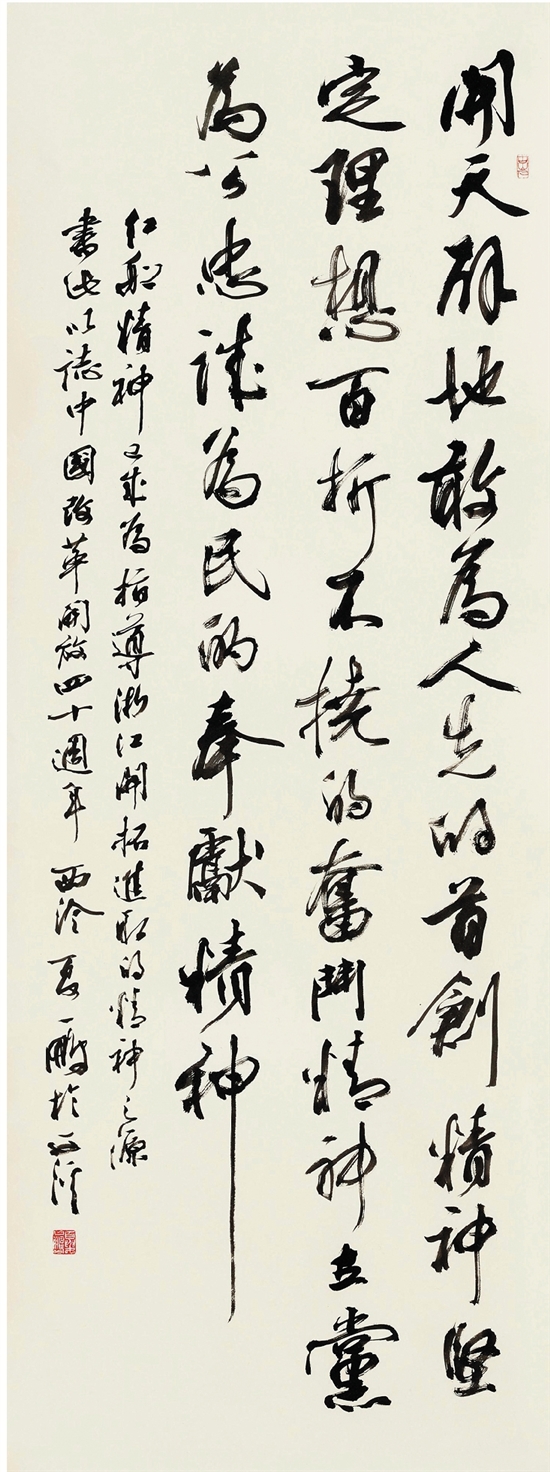 開天辟地敢為人先的首創精神堅
定理想百折不撓的奮鬥精神立黨
為公忠誠為民的奉獻精神
紅船精神已成為指導浙江開拓進取的精神之源
書此以誌中國改革開放四十週年 西泠夏一鵬於西溪